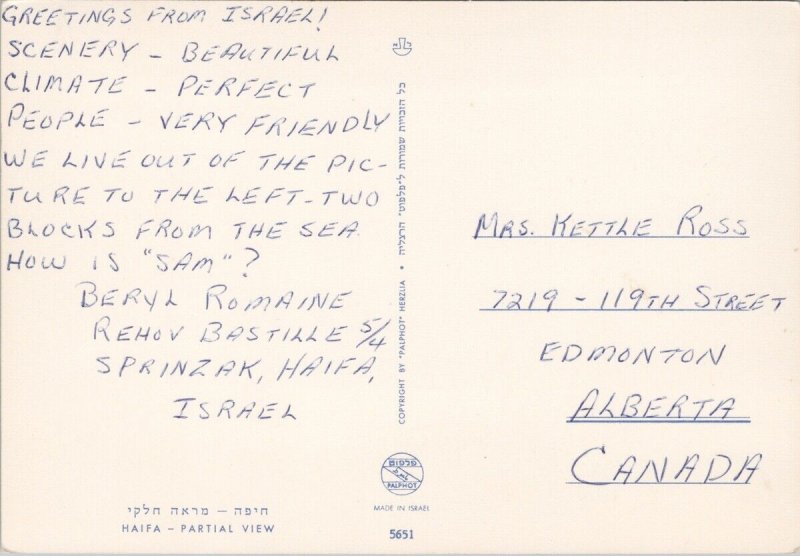 GREETINGS FROM ISRAEL!
SCENERY - BEAUTIFUL
CLIMATE - PERFECT
PEOPLE - VERY FRIENDLY
WE LIVE OUT OF THE PIC-
TURE TO THE LEFT-TWO
BLOCKS FROM THE SEA
HOW IS "SAM"?
BERYL ROMAINE
REHOV BASTILLE 5/4
SPRINZAK, HAIFA,
ISRAEL
חיפה – מראה חלקי
HAIFA – PARTIAL VIEW
כל הזכויות שמורות ל״פלפוט״ הרצליה • COPYRIGHT BY "PALPHOT" HERZLIA
פלפוט
PALPHOT
MADE IN ISRAEL
5651
MRS. KETTLE ROSS
7219 - 119TH STREET
EDMONTON
ALBERTA
CANADA